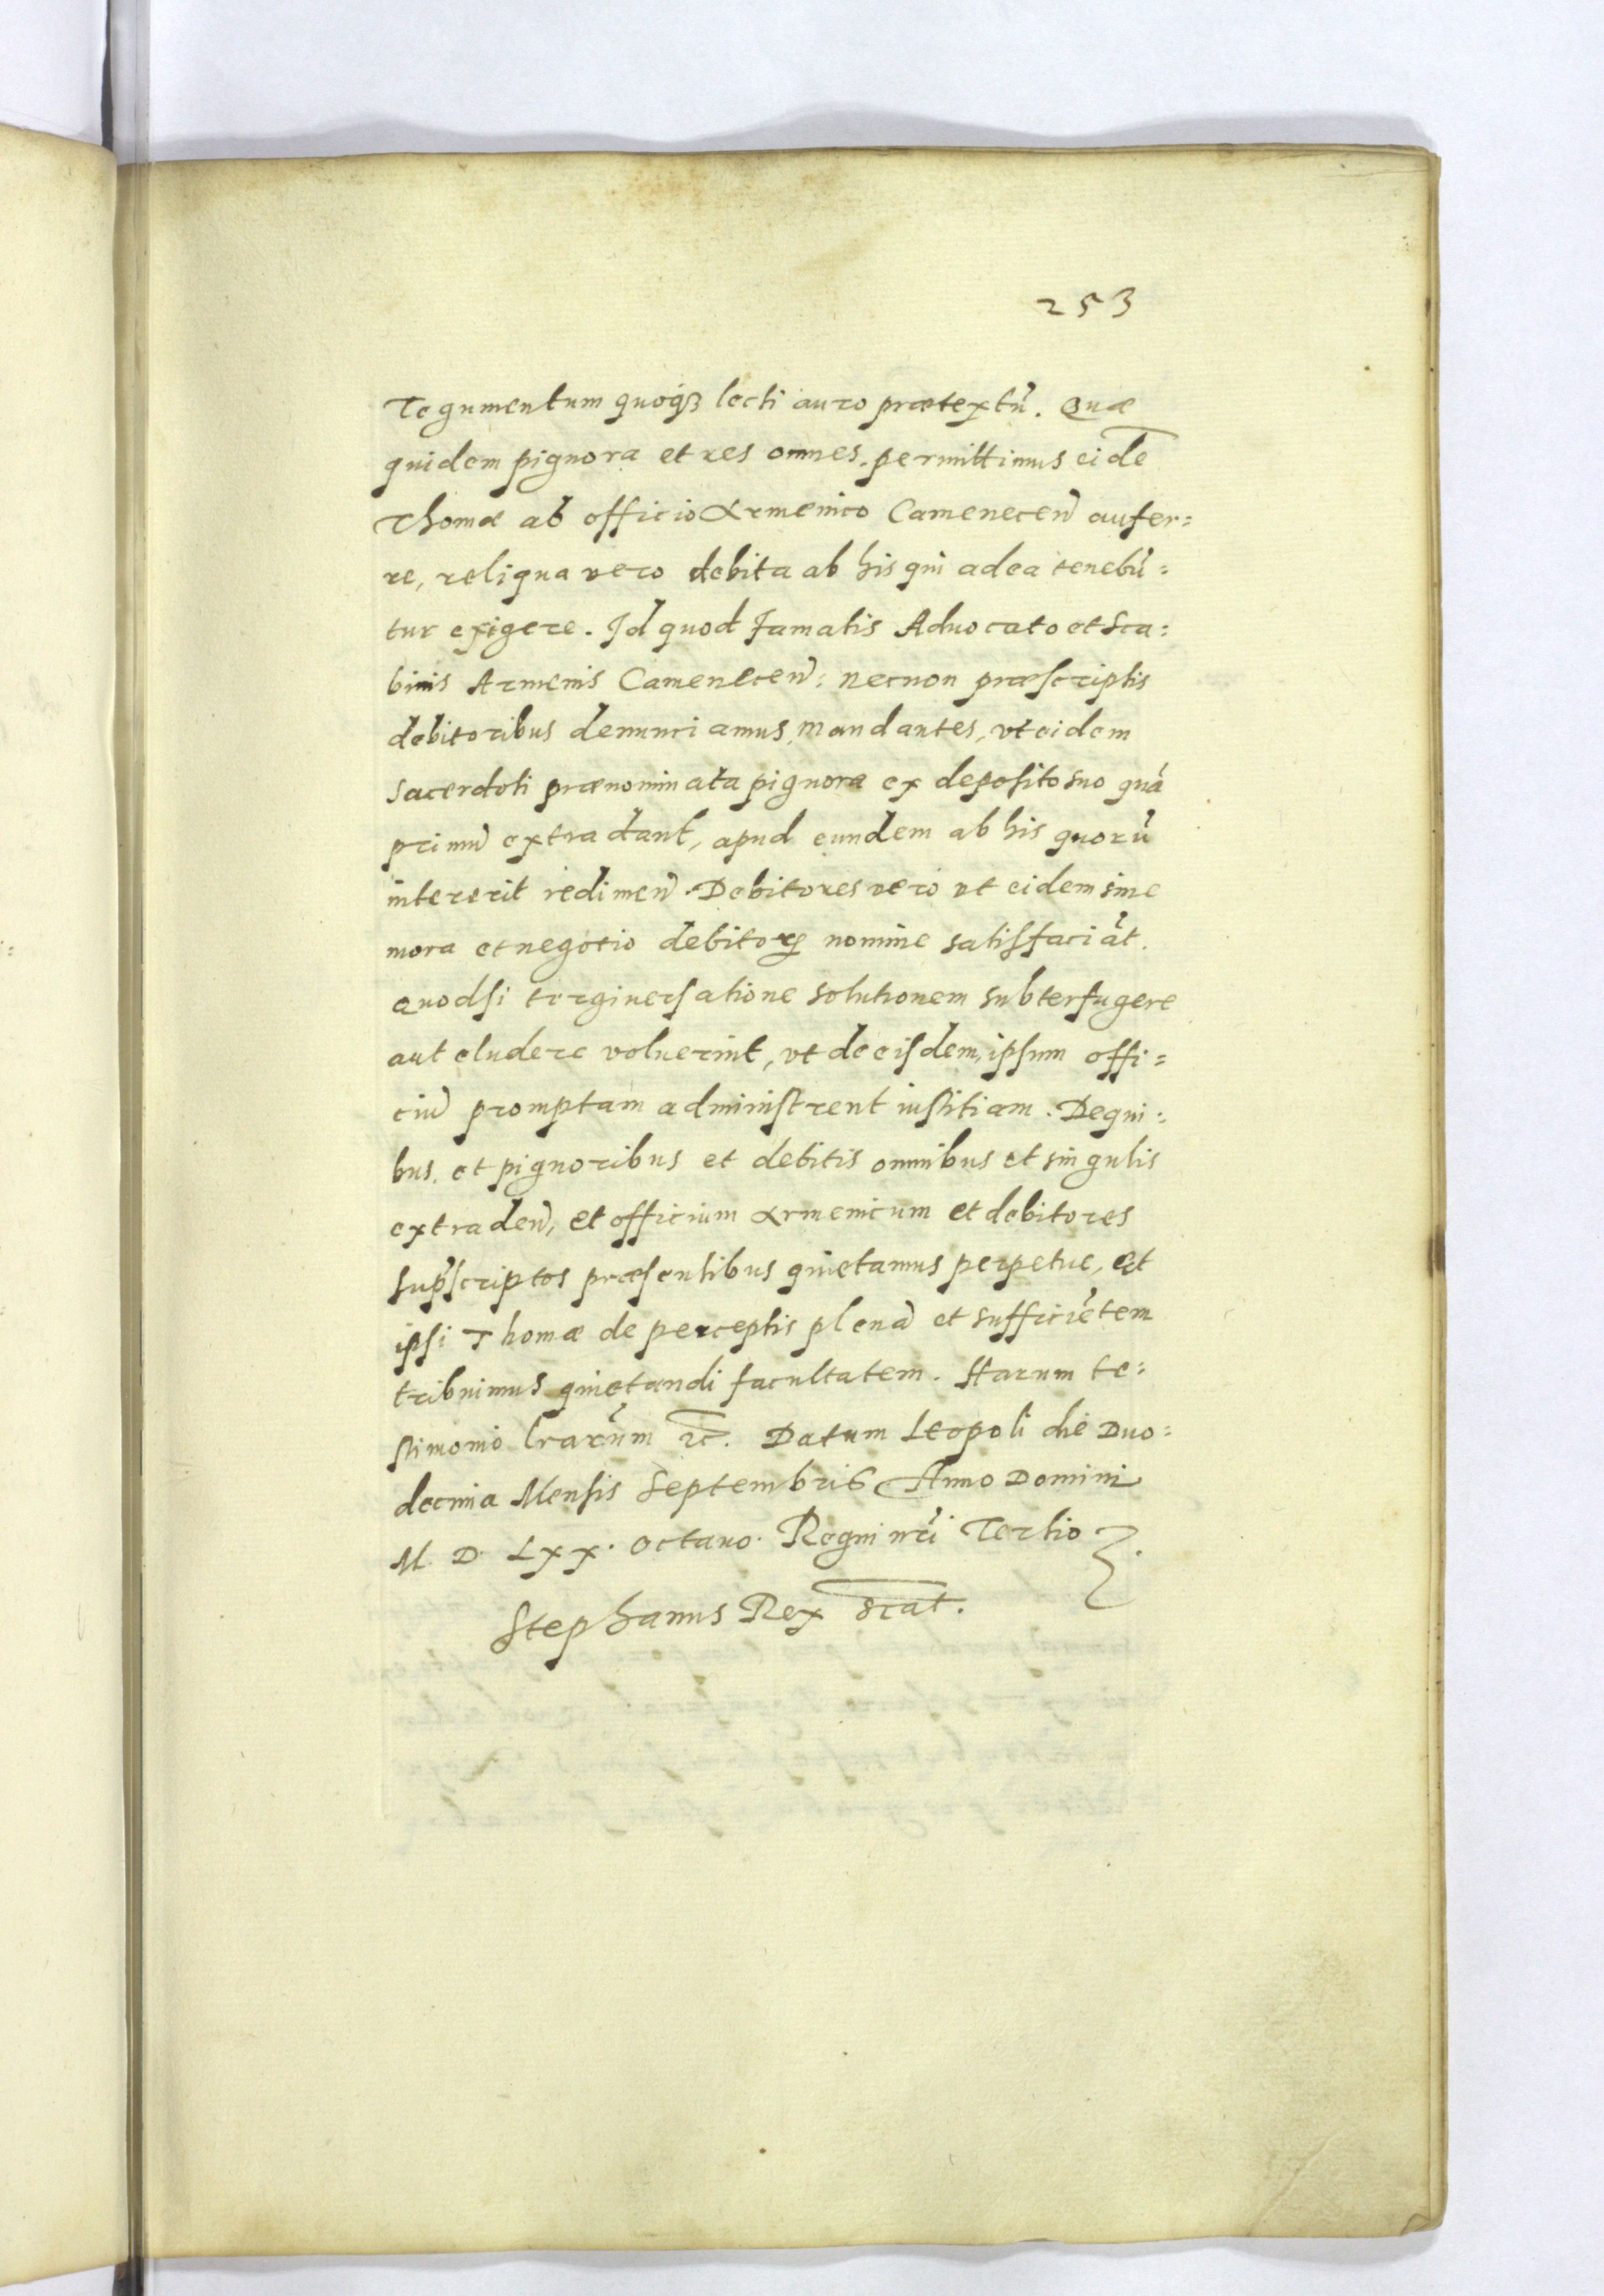 253
Tegumentum quoq₃ lecti auro prætextū. Quæ
quidem pignora et res omnes, permittimus eidē
Thomæ ab officio Armenico Camenecen̄ aufer=
re, reliqua vero debita ab his qui ad ea tenebū=
tur exigere. Id quod famatis Aduocato et Sca=
binis Armenis Camenecen̄: necnon præscriptis
debitoribus denunciamus, mandantes, vt eidem
sacerdoti prænominata pignora ex deposito suo quā
primū extradant, apud eundem ab his quorū
intererit redimen̄. Debitores vero vt eidem sine
mora et negotio debitoꝝ nomine satisfaciāt.
Quodsi tergiuersatione solutionem subterfugere
aut eludere voluerint, vt de eisdem, ipsum offi=
ciū promptam administrent iustitiam. De qui=
bus, et pignoribus et debitis omnibus et singulis
extraden̄, et officium Armenicum et debitores
sup̄scriptos præsentibus quietamus perpetue, et
ipsi Thomæ de perceptis plenā et sufficiētem
tribuimus quietandi facultatem. Harum te=
stimonio lrārum ꝛc̄. Datum Leopoli die Duo=
decima Mensis Septembris Anno Domini
M. D. Lxx. octauo. Regni nr̄i Tertio
Stephanus Rex sc̄at.